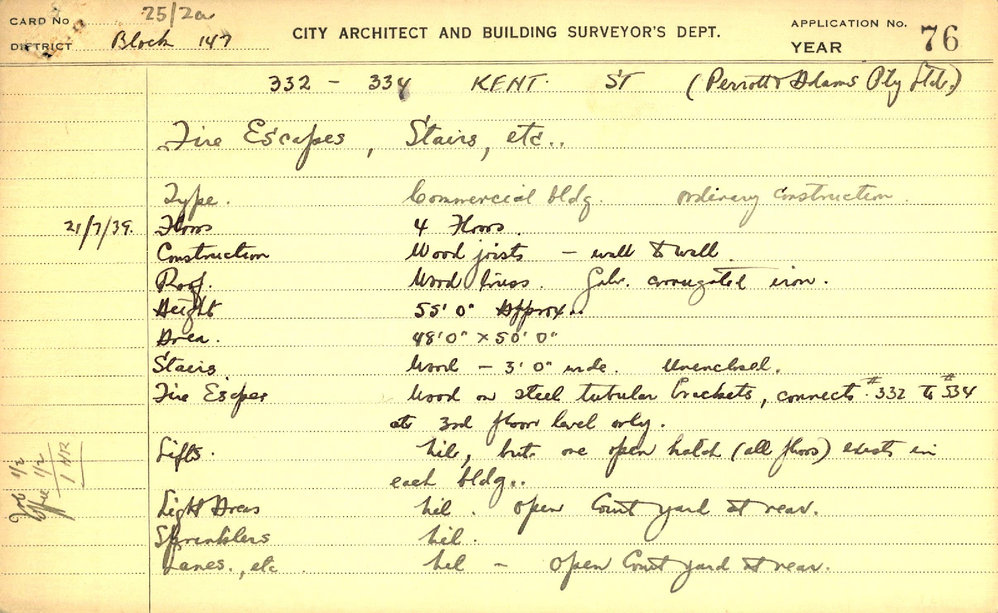 CARD No 25/2a
CITY ARCHITECT AND BUILDING SURVEYOR'S DEPT.
APPLICATION No. 76
DISTRICT Block 147
YEAR
332 - 334 KENT ST (Perrott & Adams Pty Ltd.)
Fire Escapes, Stairs, etc..
Type. Commercial bldg. ordinary construction.
21/7/39. Floors 4 Floors.
Construction Wood joists - wall to wall.
Roof. Wood truss. Galv. corrugated iron.
Height 55' 0" Approx..
Area. 48' 0" x 50' 0"
Stairs Wood - 3' 0" wide. Unenclosed.
Fire Escapes Wood on steel tubular brackets, connects #332 to #334
at 3rd floor level only.
Lifts. Nil, but one open hatch (all floors) exists in
each bldg..
Light Areas Nil. open Court yard at rear.
Sprinklers Nil.
Lanes., etc Nil - open Court yard at rear.
Job 1/2
Office 1/2
1 HR